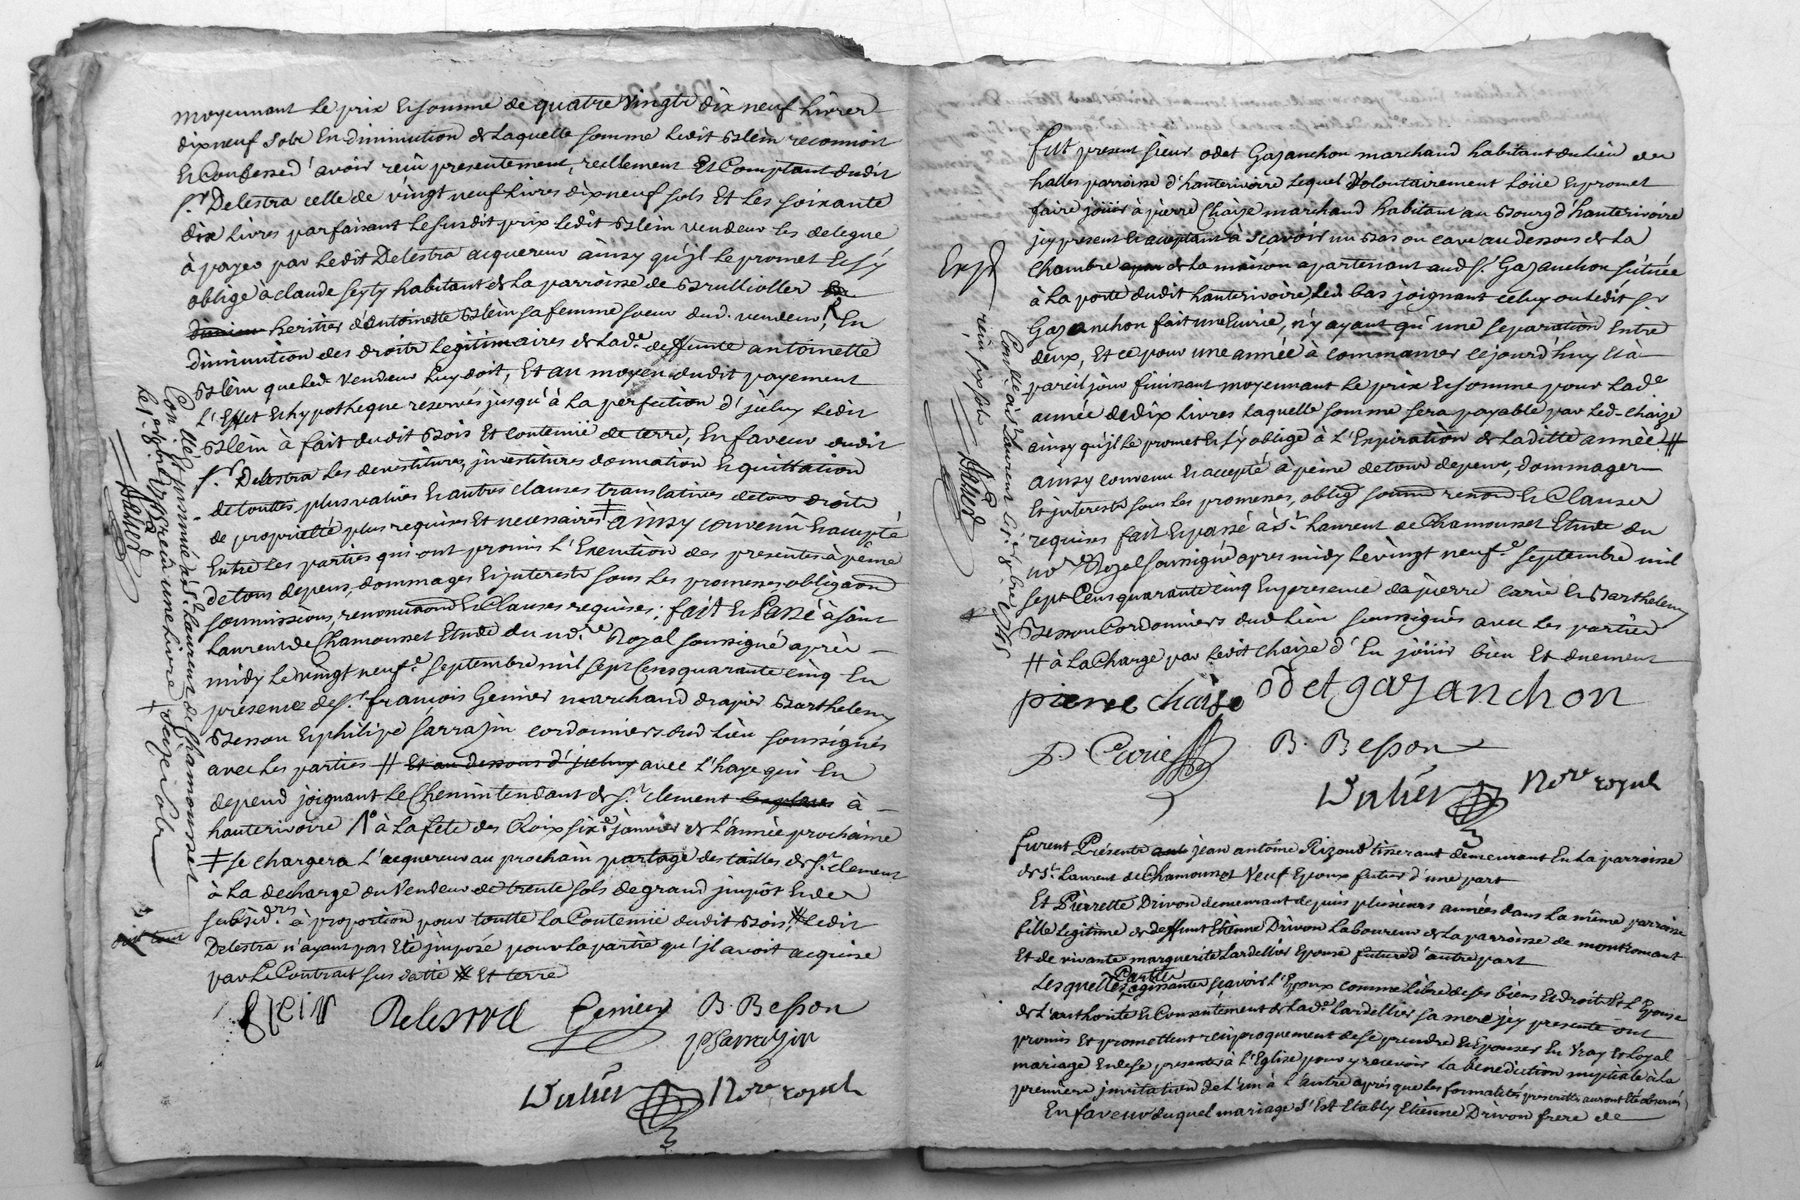 moyennant le prix et somme de quatre vingts dix neuf livres
dixneuf sols en diminution de laquelle somme ledit Blein reconnoit
et Confesse d'avoir reçû presentement, reellement Et Comptant dudit
s.r Delestra celle de vingt neuf livres dixneuf sols Et les soixante
dix livres parfaisant le susdit prix ledit Blein vendeur les delegue
à payer par ledit Delestra acquereur ainsy qu'jl le promet Et s'y
oblige à claude seyty habitant de la parroisse de Brullioller
heritier d'antoinette Blein sa femme soeur dud. vendeur, En
diminution des droits legitimaires de lad.e deffunte antoinette
Blein que led. vendeur luy doit, Et au moyen dudit payement
l'Effet Et hypotheque reservés jusqu'à la perfection d'jcluy ledit
Blein à fait dudit Bois Et contenüe de terre, En faveur dudit
s.r Delestra les devestitures, jnvestitures donnation Et quittation
de touttes plusvalües Et autres clauses translatives de tous droits
de proprietté plus requises Et necessaires ‡ ainsy convenû Et accepté
Entre les parties qui ont promis l'Execution des presentes à peine
de tous depens, dommages Et jnterests sous les promesses obligaon
soumissions, renonciaons Et Clauses requises; fait Et Passé à saint
laurent de Chamousset Etude du no.re Royal soussigné après
midy le vingt neuf.e septembre mil sept Cens quarante cinq En
présence de s.r françois Gemier marchand drapier Barthelemy
Besson Et philipe sarrazin cordonniers dud lieu soussignés
avec les parties # Et au dessous d'jcelluy avec l'haye qui En
depend joignant le Chemin tendant de s.t clement à
hauterivoire /1º à la fete des Roix six.e janvier de l'année prochaine
‡ se chargera l'acquereur au prochain partage des tailles de s.t clement
à la decharge du Vendeur de trente sols de grand jmpôt Et des
subsid.res à proportion pour toutte la Contenüe dudit Bois, ledit
Delestra n'ayant pas Eté jmposé pour la partie qu'jl avoit acquise
par le Contrat sus datté Et terre
Blein Delestra Gemier B. Besson
p Sarrazin
Dulieu No.re royal
Con.llé et jnsinué à s.t laurent de chamousset
le reçu une livre seize sols
fut present sieur odet Gazanchon marchand habitant du lieu des
halles parroisse d'hauterivoire lequel Volontairement loüe Et promet
faire joüir à pierre Chaize marchand habitant au Bourg d'hauterivoire
jcy present Et acceptant à sçavoir un Bas ou cave au dessous de la
chambre de la maison apartenant aud s.r Gazanchon sitüée
à la porte dudit hauterivoire, led. bas joignant celuy ou ledit s.r
Gazanchon fait une Ecurie, n'y ayant qu'une separation Entre
deux, Et ce pour une année à commancer cejourd'huy Et à
pareil jour finissant moyennant le prix Et somme pour lad.e
année de dix livres laquelle somme sera payable par led. chaize
ainsy qu'jl le promet Et s'y oblige à l'Expiration de laditte année #
ainsy convenu Et accepté à peine de tous depens, dommages
Et jnterests sous les promesses, oblig soum renon Et Clauses
requises fait Et passé à s.t laurent de Chamousset Etude du
no.re Royal soussigné apres midy le vingt neuf.e septembre mil
sept Cens quarante cinq En presence de pierre carie Et Barthelemy
Besson Cordonniers dud lieu soussignés avec les parties
# à la Charge par ledit chaize d'En joüir bien Et duement
pierre chaise odet gazanchon
P. Carie B. Besson
Dulieu No.re royal
Exp.é
Con.llé à s.t laurent le
reçu six sols
furent Présents jean antoine Rizoud tisserant demeurant En la parroisse
de s.t Laurent de Chamousset Veuf Epoux futur d'une part
Et Pierrette Drivon demeurant depuis plusieurs années dans la même parroisse
fille legitime de deffunt Etienne Drivon Laboureur de la parroisse de montromant
Et de vivante marguerite Lardellier Epouse future d'autre part
Lesquelles Parties Egissantes sçavoir l'Epoux comme libre de ses biens Et droits Et l'Epouse
de l'authorité Et Consentement de lad.e Lardellier sa mere jcy presente ont
promis Et promettent reciproquement de se prendre Et Epouser En Vray Et Loyal
mariage Et de se presenter à l'Eglise pour y recevoir la benediction nuptiale à la
premiere jnvitation de l'un à l'autre après que les formalités prescrittes auront Eté observés
En faveur duquel mariage s'Est Etably Etienne Drivon frere de